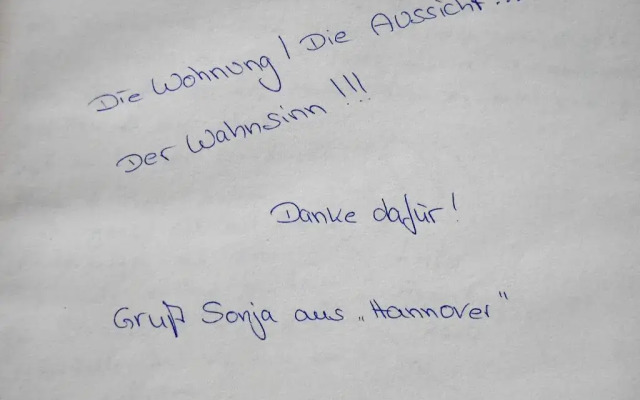 Die Wohnung / Die Aussicht...
Der Wahnsinn !!!
Danke dafür!
Gruß Sonja aus „Hannover"